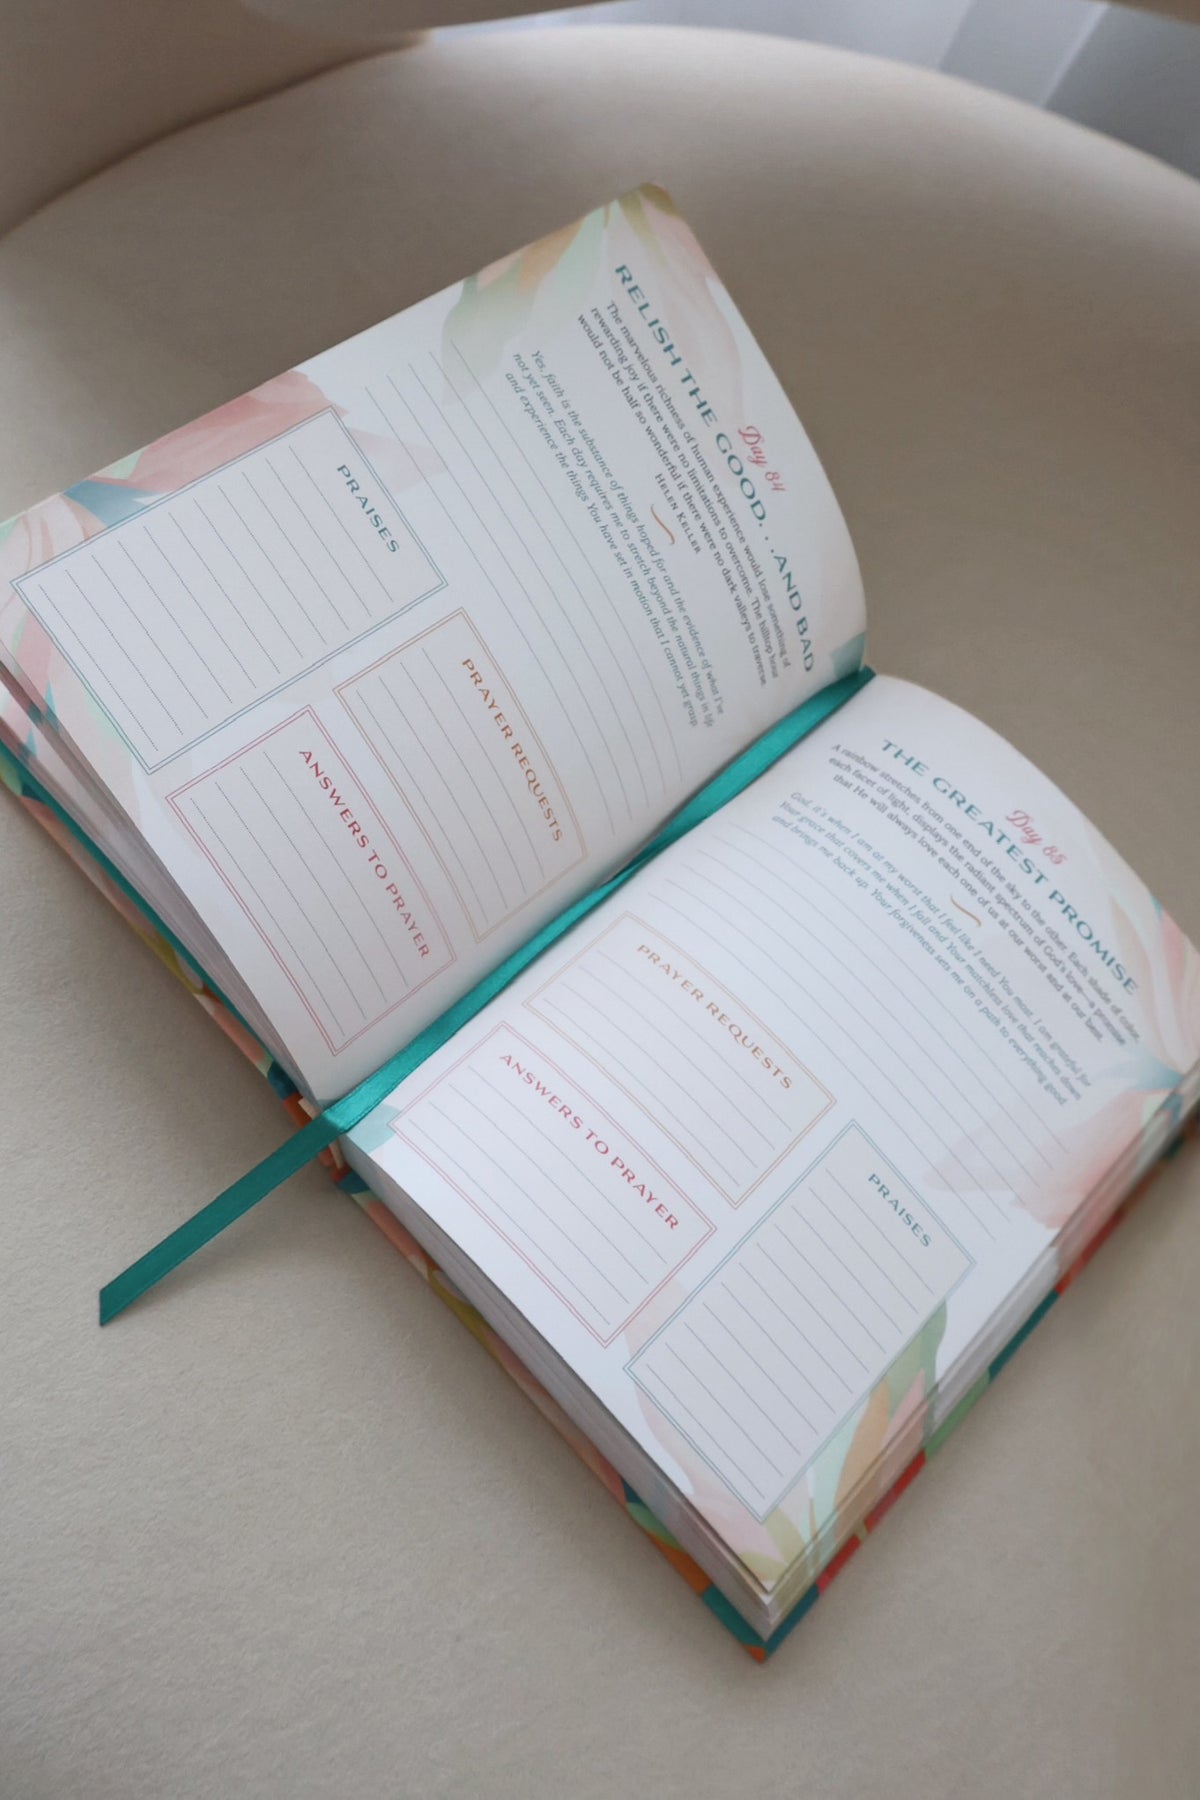 Day 84
RELISH THE GOOD. . .AND BAD
The marvelous richness of human experience would lose something of
rewarding joy if there were no limitations to overcome. The hilltop hour
would not be half so wonderful if there were no dark valleys to traverse.
HELEN KELLER
Yes, faith is the substance of things hoped for and the evidence of what I've
not yet seen. Each day requires me to stretch beyond the natural things in life
and experience the things You have set in motion that I cannot yet grasp.
PRAYER REQUESTS
PRAISES
ANSWERS TO PRAYER
Day 85
THE GREATEST PROMISE
A rainbow stretches from one end of the sky to the other. Each shade of color,
each facet of light, displays the radiant spectrum of God's love—a promise
that He will always love each one of us at our worst and at our best.
God, it's when I am at my worst that I feel like I need You most. I am grateful for
Your grace that covers me when I fall and Your matchless love that reaches down
and brings me back up. Your forgiveness sets me on a path to everything good.
PRAYER REQUESTS
PRAISES
ANSWERS TO PRAYER